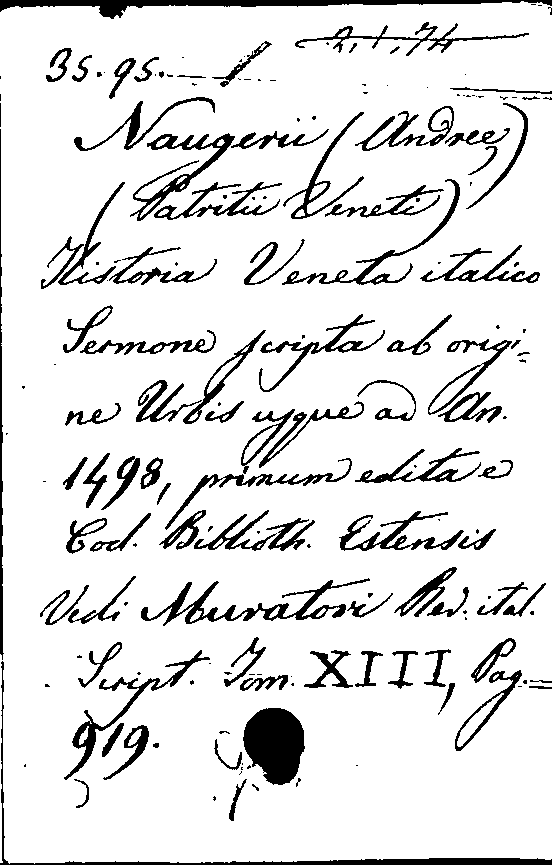 2.1.74
35.95.
Naugerii (Andree)
(Patritii Veneti)
Historia Veneta italico
Sermone scripta ab origi=
ne Urbis usque ad An.
1498, primum edita e
Cod. Biblioth. Estensis
Vedi Muratori Rer. ital.
Script. Tom. XIII, Pag.
919.